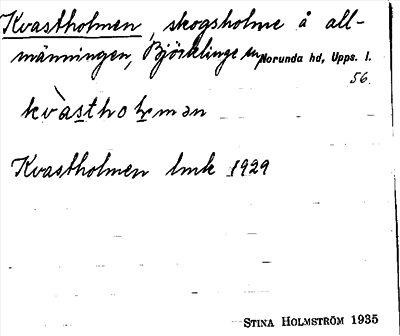 Kvastholmen, skogsholme å all-
männingen, Björklinge sn, Norunda hd, Upps. l.
56.
kvàstholmən
Kvastholmen lmk 1929
STINA HOLMSTRÖM 1935